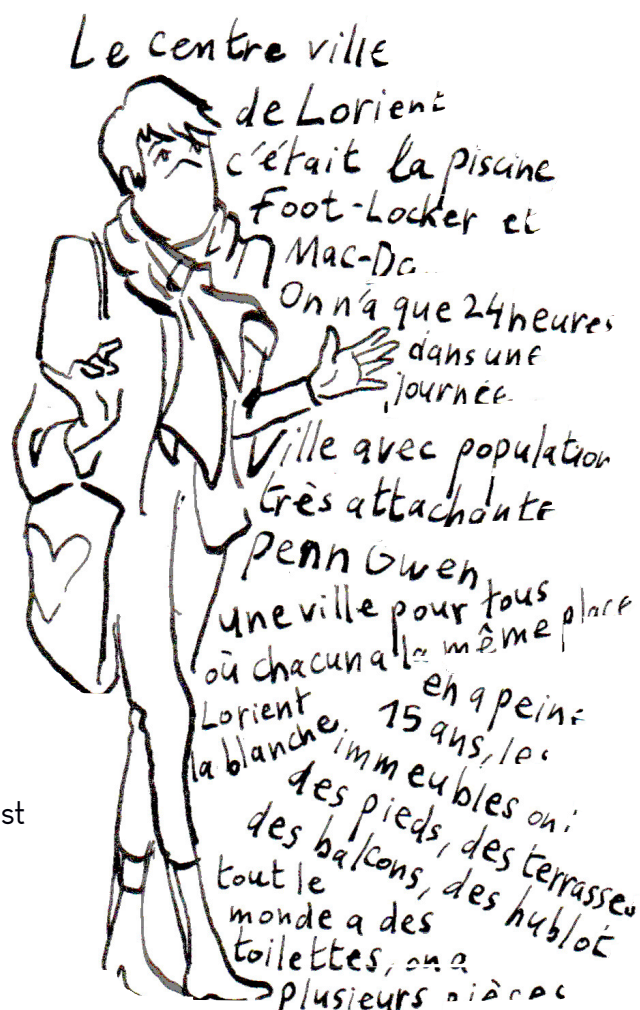 Le centre ville
de Lorient
c'était la piscine
Foot-Locker et
Mac-Do
On n'a que 24 heures
dans une
journée
Ville avec population
très attachante
Penn Gwen
une ville pour tous
où chacun a la même place
Lorient
la blanche
en a peine
15 ans, les
immeubles on
des pieds, des terrasses
des balcons, des hublot
st
tout le
monde a des
toilettes, on a
plusieurs pièces